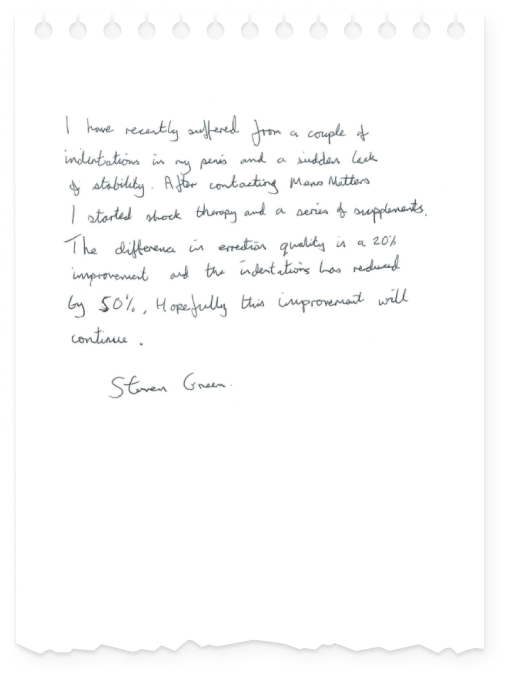 I have recently suffered from a couple of
indentations in my penis and a sudden lack
of stability. After contacting Mens Matters
I started shock therapy and a series of supplements.
The difference in erection quality is a 20%
improvement and the indentations has reduced
by 50%, Hopefully this improvement will
continue.
Steven Green.